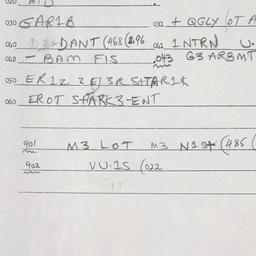 030 GAR1B 031 + QGLY LOT A
040 DANT (468 (296 041 1NTRN U.
042 - BAM FIS .043 G3 AR3MT
050 ER1Z 2 E)3R SHTAR1K
060 EROT SHARK3-ENT
901 M3 LOT M3 N1S+ (485 (
902 VU.1S (022